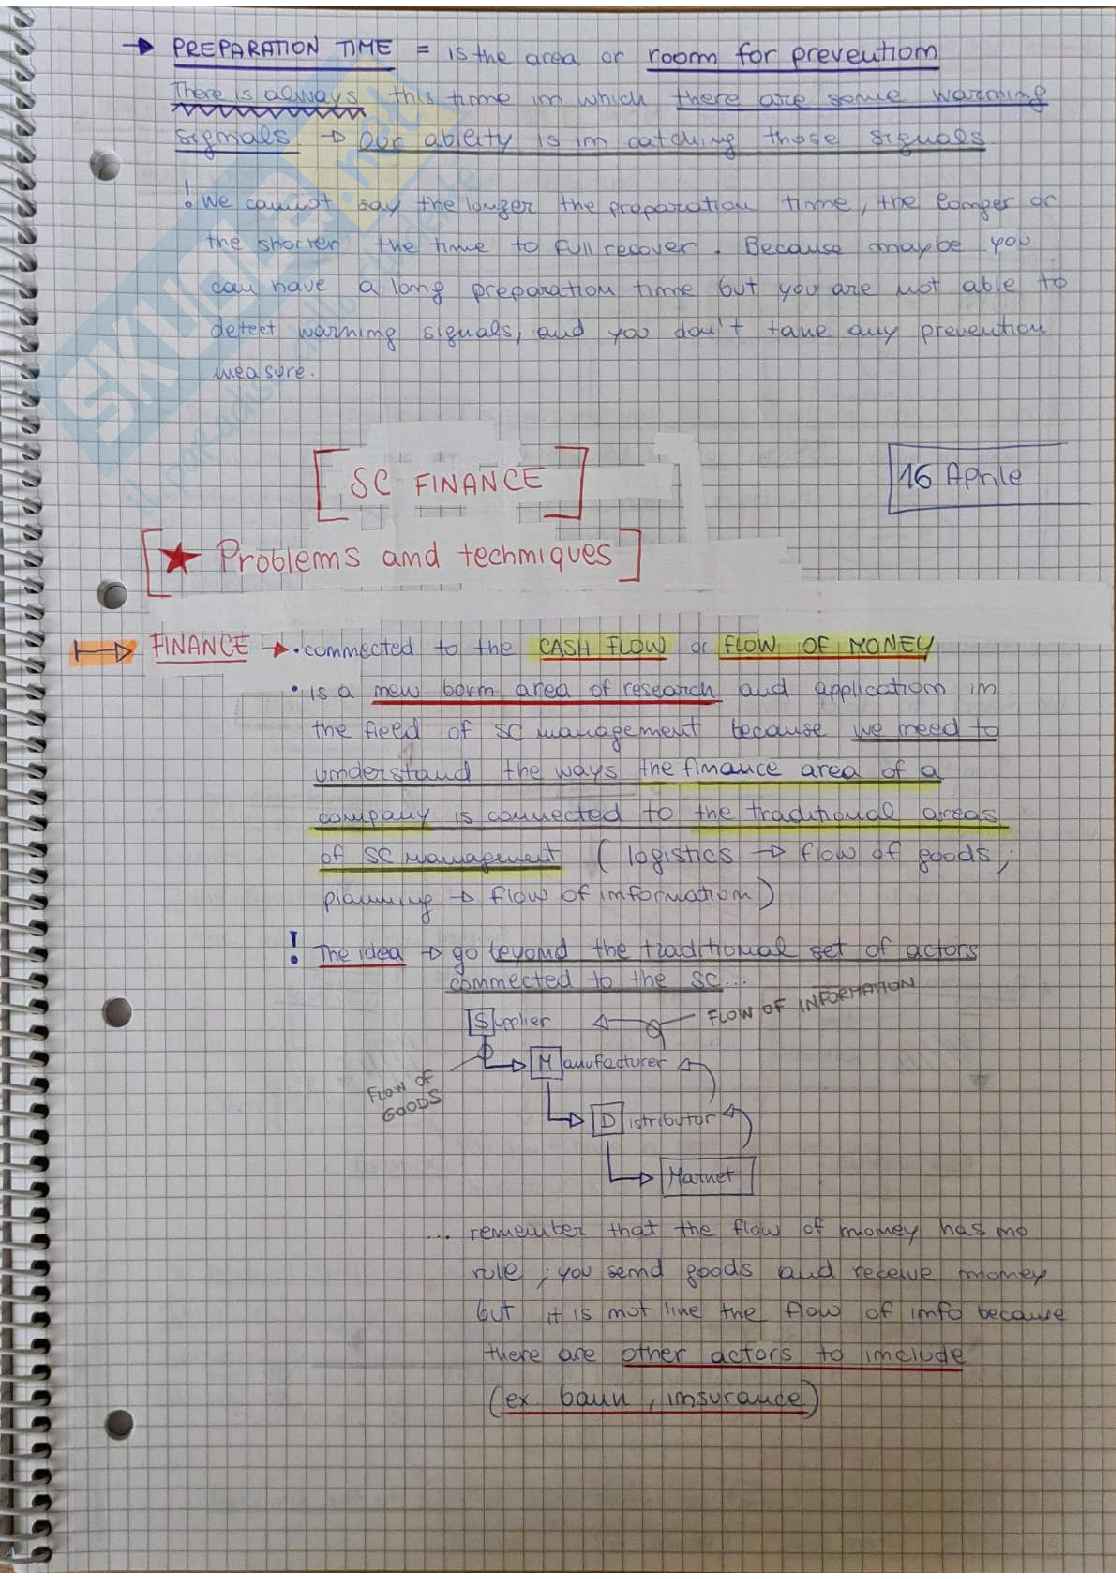 → PREPARATION TIME = is the area or room for prevention
There is always this time in which there are some warning
signals → our ability is in catching those signals
! We cannot say the longer the preparation time, the longer or
the shorter the time to full recover. Because maybe you
can have a long preparation time but you are not able to
detect warning signals, and you don't take any prevention
measure.
SC FINANCE
16 Aprile
★ Problems and techniques
FINANCE → • connected to the CASH FLOW or FLOW OF MONEY
• is a new born area of research and application in
the field of SC management because we need to
understand the ways the finance area of a
company is connected to the traditional areas
of SC management (logistics → flow of goods;
planning → flow of information)
! The idea → go beyond the traditional set of actors
connected to the SC...
Supplier
FLOW OF INFORMATION
Manufacturer
FLOW OF
GOODS
Distributor
Market
... remember that the flow of money has no
rule, you send goods and receive money
but it is not like the flow of info because
there are other actors to include
(ex bank, insurance)
SKUOLA.net